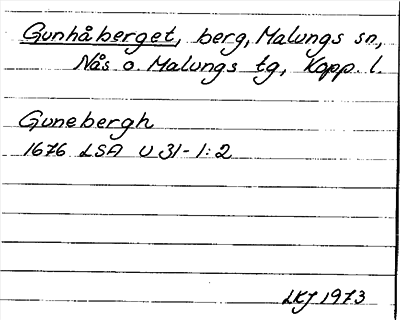 Gunhåberget, berg, Malungs sn,
Nås o. Malungs tg, Kopp. l.
Gunebergh
1676 LSA U 31-1:2
LKJ 1973